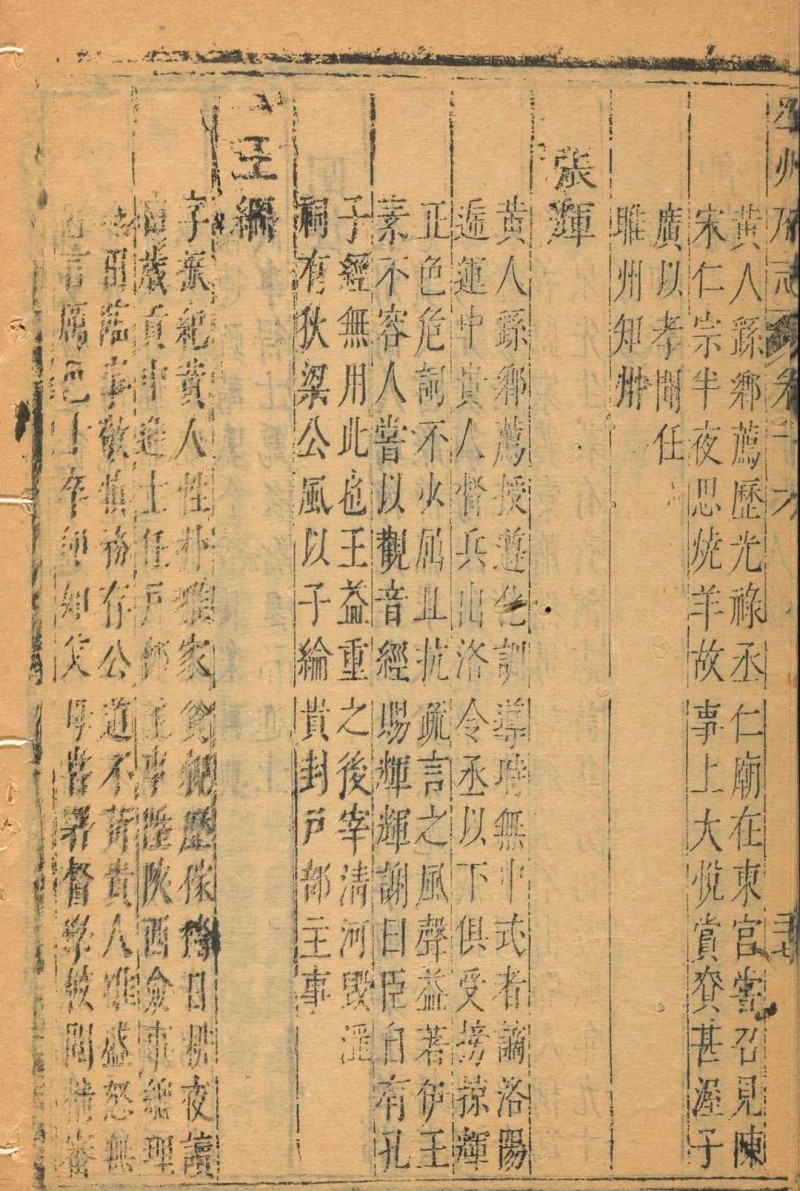 州乃志卷十六
黃人繇鄉薦歷光祿丞仁廟在東宮嘗召見陳
宋仁宗半夜思燒羊故事上大悅賞賚甚渥子
廣以孝聞任
睢州知州
張輝
黃人繇鄉薦授遵化訓導時無中式者謫洛陽
遞運中貴人督兵出洛令丞以下俱受搒掠輝
正色危詞不少屈且抗疏言之風聲益著伊王
素不容人嘗以觀音經賜輝輝謝曰臣自有孔
子經無用此也王益重之後宰清河毀淫
祠有狄梁公風以子綸貴封戶部主事
王綱
字振紀黃人性朴雅家貧親歷稼穡日耕夜讀
歲貢中進士任戶部主事陞陝西僉事總理
田臨事敬慎務存公道不黃貴人雖盛怒無
言屬吏士卒仰如父母嘗署督學校閱精審